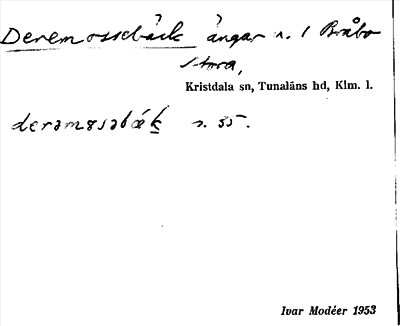 Deremossebäck ängar n. 1 Bråbo
Stora,
Kristdala sn, Tunaläns hd, Klm. l.
derəmɞsəbæk s. 55.
Ivar Modéer 1953